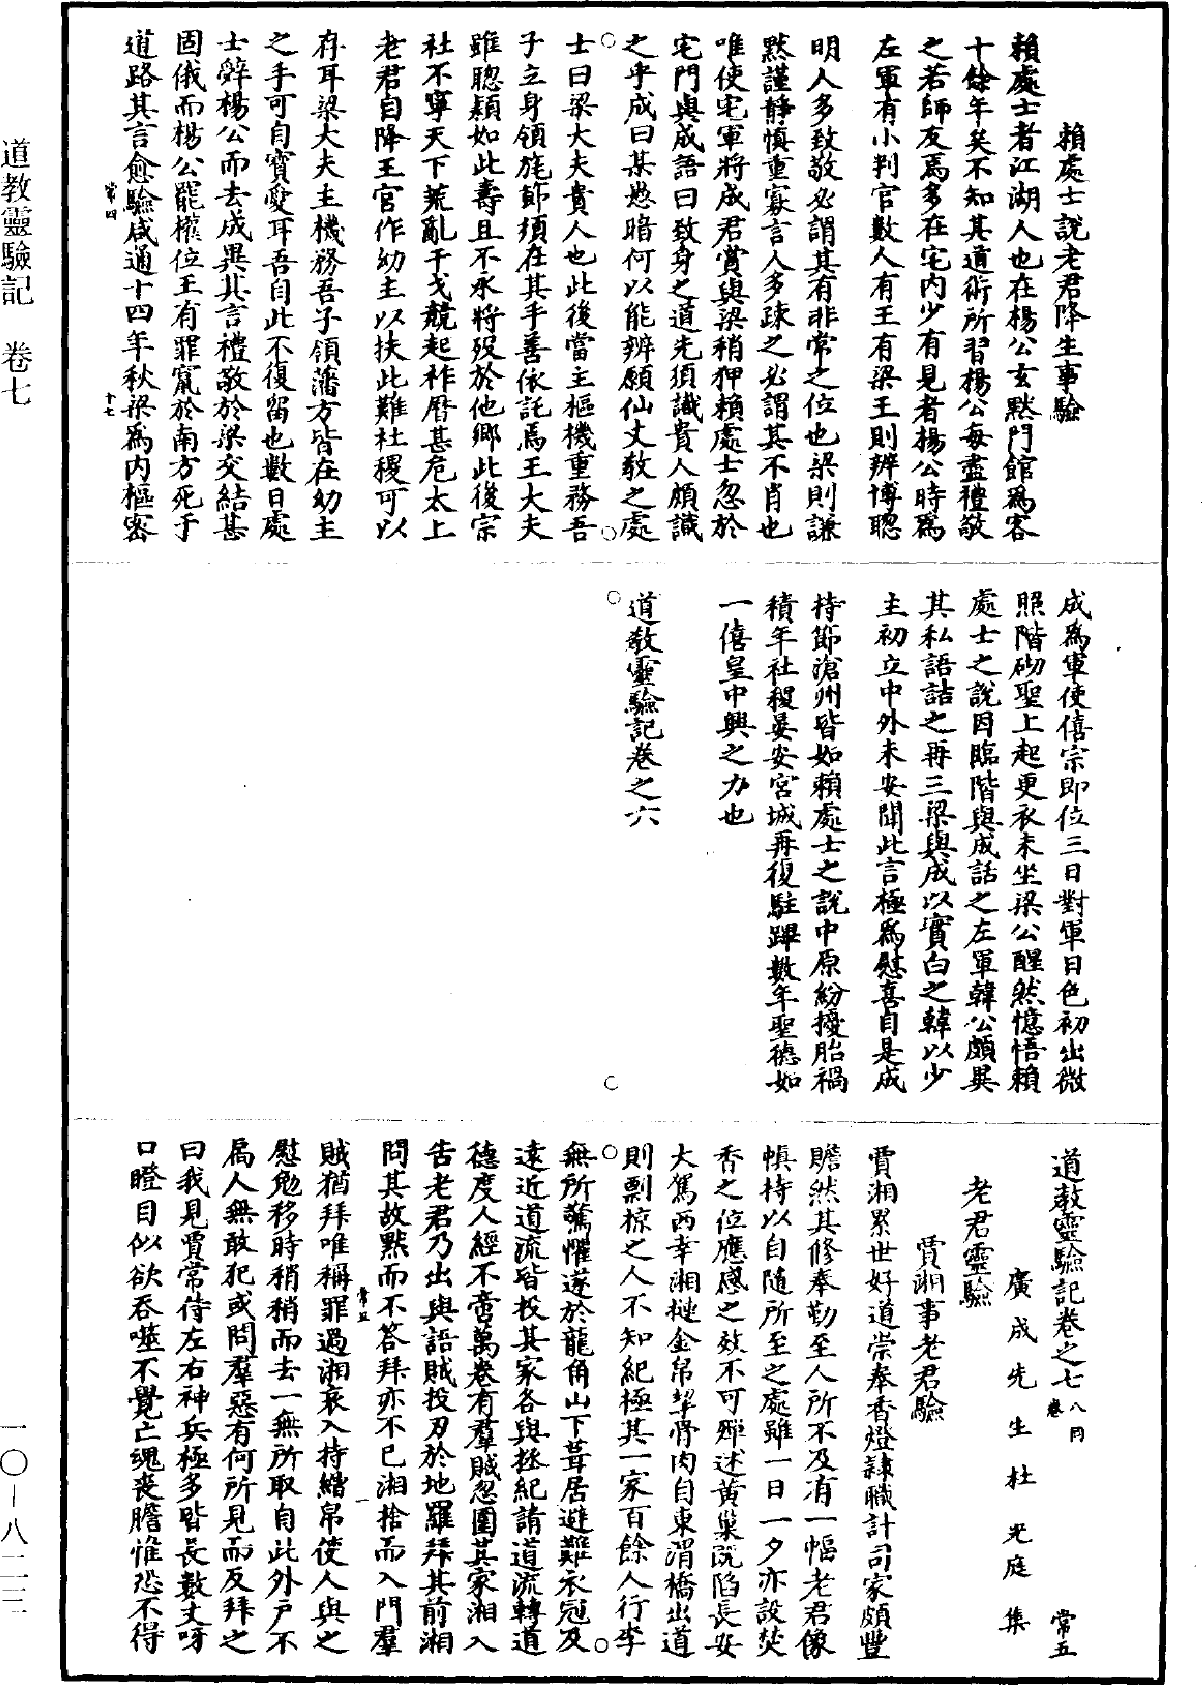 賴處士說老君降生事驗
賴處士者江湖人也在楊公玄黙門館爲客
十餘年矣不知其道術所習楊公每盡禮敬
之若師友焉多在宅内少有見者楊公時爲
左軍有小判官數人有王有梁王則辨博聰
明人多致敬必謂其有非常之位也梁則謙
黙謹靜慎重寡言人多疎之必謂其不肖也
唯使宅軍將成君賞與梁稍狎賴處士忽於
宅門與成語曰致身之道先須識貴人頗識
之乎成曰某愚暗何以能辨願仙丈教之處
士曰梁大夫貴人也此後當主樞機重務吾
子立身領旄節須在其手善依託焉王大夫
雖聰穎如此壽且不永將歿於他鄉此後宗
社不寧天下荒亂干戈競起祚曆甚危太上
老君自降王官作幼主以扶此難社稷可以
存耳梁大夫主機務吾子領藩方皆在幼主
之手可自寶愛耳吾自此不復留也數日處
士辭楊公而去成異其言禮敬於梁交結甚
固俄而楊公罷權位王有罪竄於南方死于
道路其言愈驗咸通十四年秋梁爲内樞密
常四
十七
成爲軍使僖宗即位三日對軍日色初出微
照階砌聖上起更衣未坐梁公醒然憶悟賴
處士之說因臨階與成話之左軍韓公頗異
其私語詰之再三梁與成以實白之韓以少
主初立中外未安聞此言極爲慰喜自是成
持節滄州皆如賴處士之說中原紛擾胎禍
積年社稷晏安宮城再復駐蹕數年聖德如
一僖皇中興之力也
道教靈驗記卷之六
道教靈驗記卷之七 八同卷 常五
廣成先生杜光庭集
老君靈驗
賈湘事老君驗
賈湘累世好道崇奉香燈隷職計司家頗豐
贍然其修奉勤至人所不及有一幅老君像
幀持以自隨所至之處雖一日一夕亦設焚
香之位應感之效不可殫述黄巢既陷長安
大駕西幸湘挺金帛挈骨肉自東渭橋出道
則剽掠之人不知紀極其一家百餘人行李
無所驚懼遂於龍角山下葺居避難衣冠及
遠近道流皆投其家各與拯紀請道流轉道
德度人經不啻萬卷有羣賊忽圍其家湘入
告老君乃出與語賊投刃於地羅拜其前湘
問其故黙而不答拜亦不已湘捨而入門羣
賊猶拜唯稱罪過湘哀入持繒帛使人與之
慰勉移時稍稍而去一無所取自此外户不
扃人無敢犯或問羣惡有何所見而反拜之
曰我見賈常侍左右神兵極多皆長數丈呀
口瞪目似欲吞噬不覺亡魂喪膽惟恐不得
常五
一
道教靈驗記 卷七
一〇—八二三